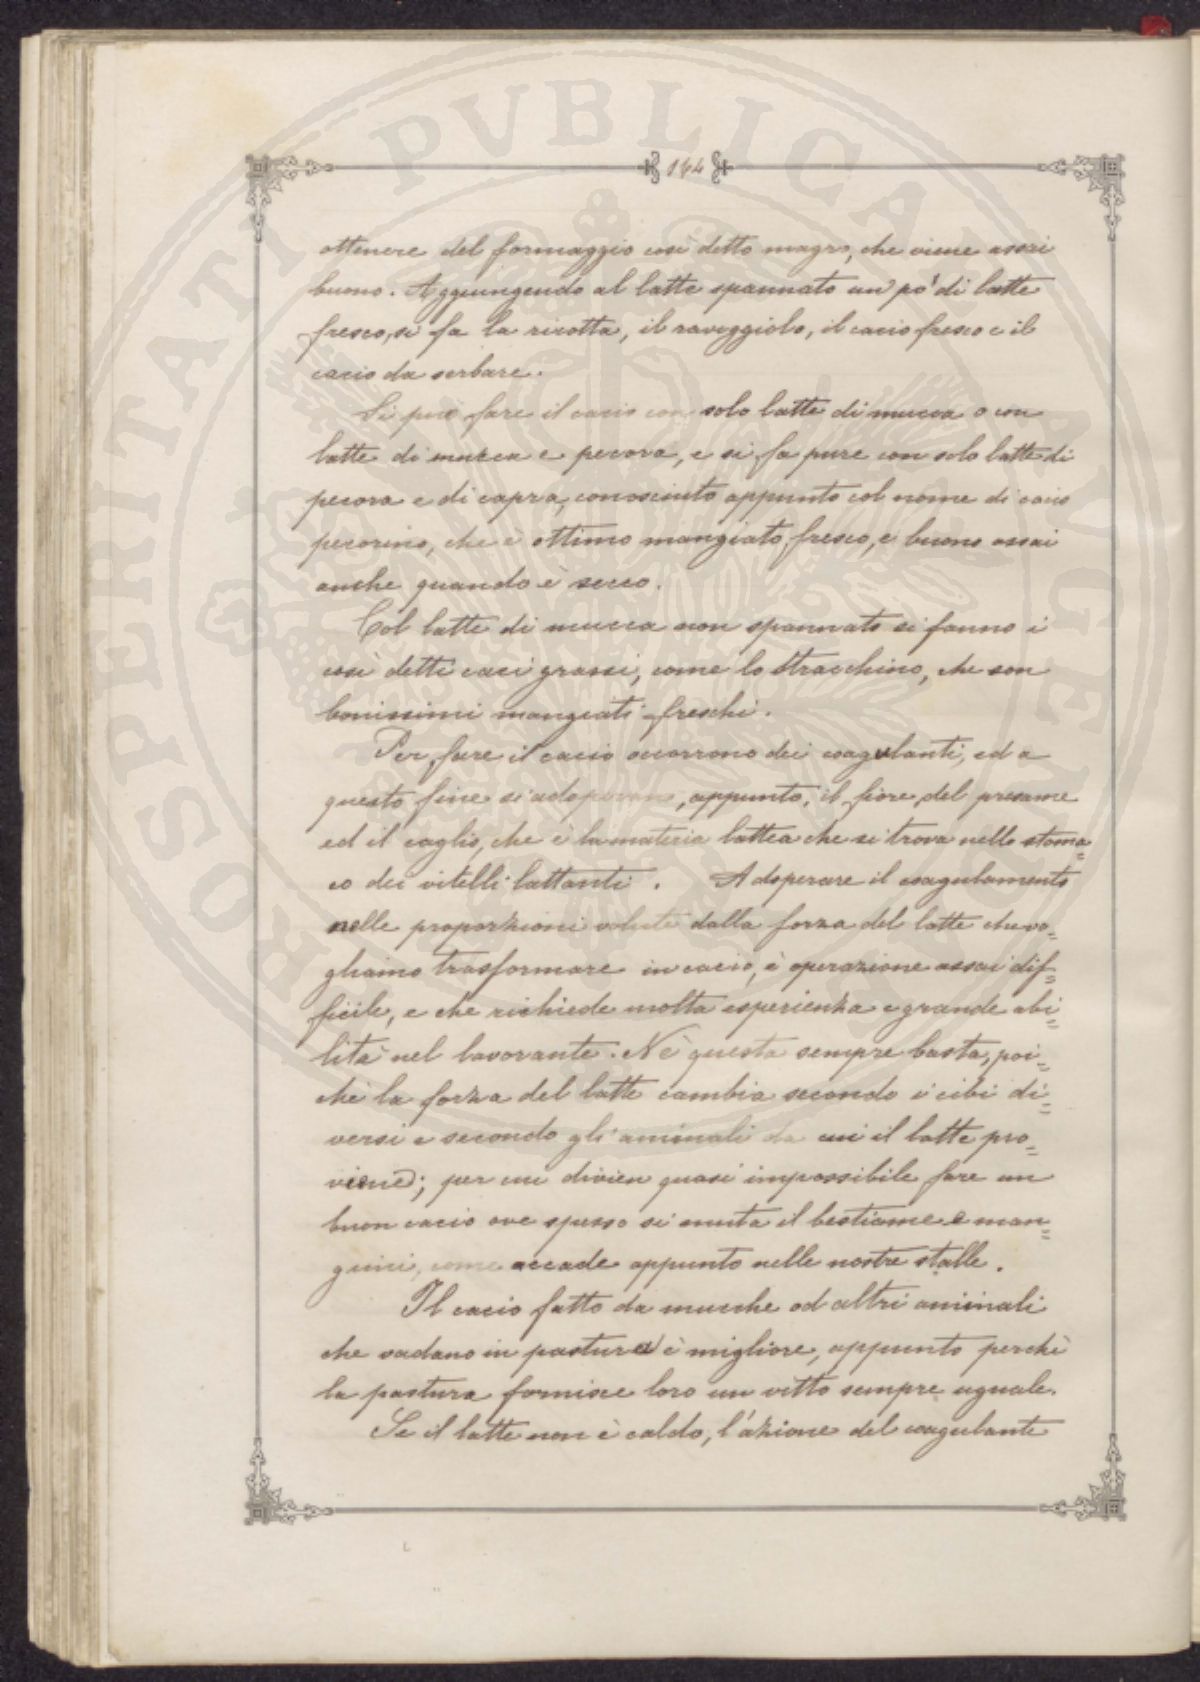 PROSPERITATI PUBLICAE AUGENDAE
164
ottenere del formaggio così detto magro, che viene assai
buono. Aggiungendo al latte spannato un pò di latte
fresco, si fa la ricotta, il raveggiolo, il cacio fresco e il
cacio da serbare.
Si può fare il cacio con solo latte di mucca o con
latte di mucca e pecora, e si fa pure con solo latte di
pecora e di capra, conosciuto appunto col nome di cacio
pecorino, che è ottimo mangiato fresco, e buono assai
anche quando è secco.
Col latte di mucca non spannato si fanno i
così detti caci grassi, come lo Stracchino, che son
bonissimi mangiati freschi.
Per fare il cacio occorrono dei coagulanti, ed a
questo fine si adoperano, appunto, il fiore del presame
ed il caglio, che è la materia lattea che si trova nello stoma=
co dei vitelli lattanti. Adoperare il coagulamento
nelle proporzioni volute dalla forza del latte che vo=
gliamo trasformare in cacio, è operazione assai dif=
ficile, e che richiede molta esperienza e grande abi=
lità nel lavorante. Nè questa sempre basta, poi=
chè la forza del latte cambia secondo i cibi di=
versi e secondo gli animali da cui il latte pro=
viene; per cui divien quasi impossibile fare un
buon cacio ove spesso si muta il bestiame e man=
gimi, come accade appunto nelle nostre stalle.
Il cacio fatto da mucche od altri animali
che vadano in pastura è migliore, appunto perchè
la pastura fornisce loro un vitto sempre uguale.
Se il latte non è caldo, l'azione del coagulante